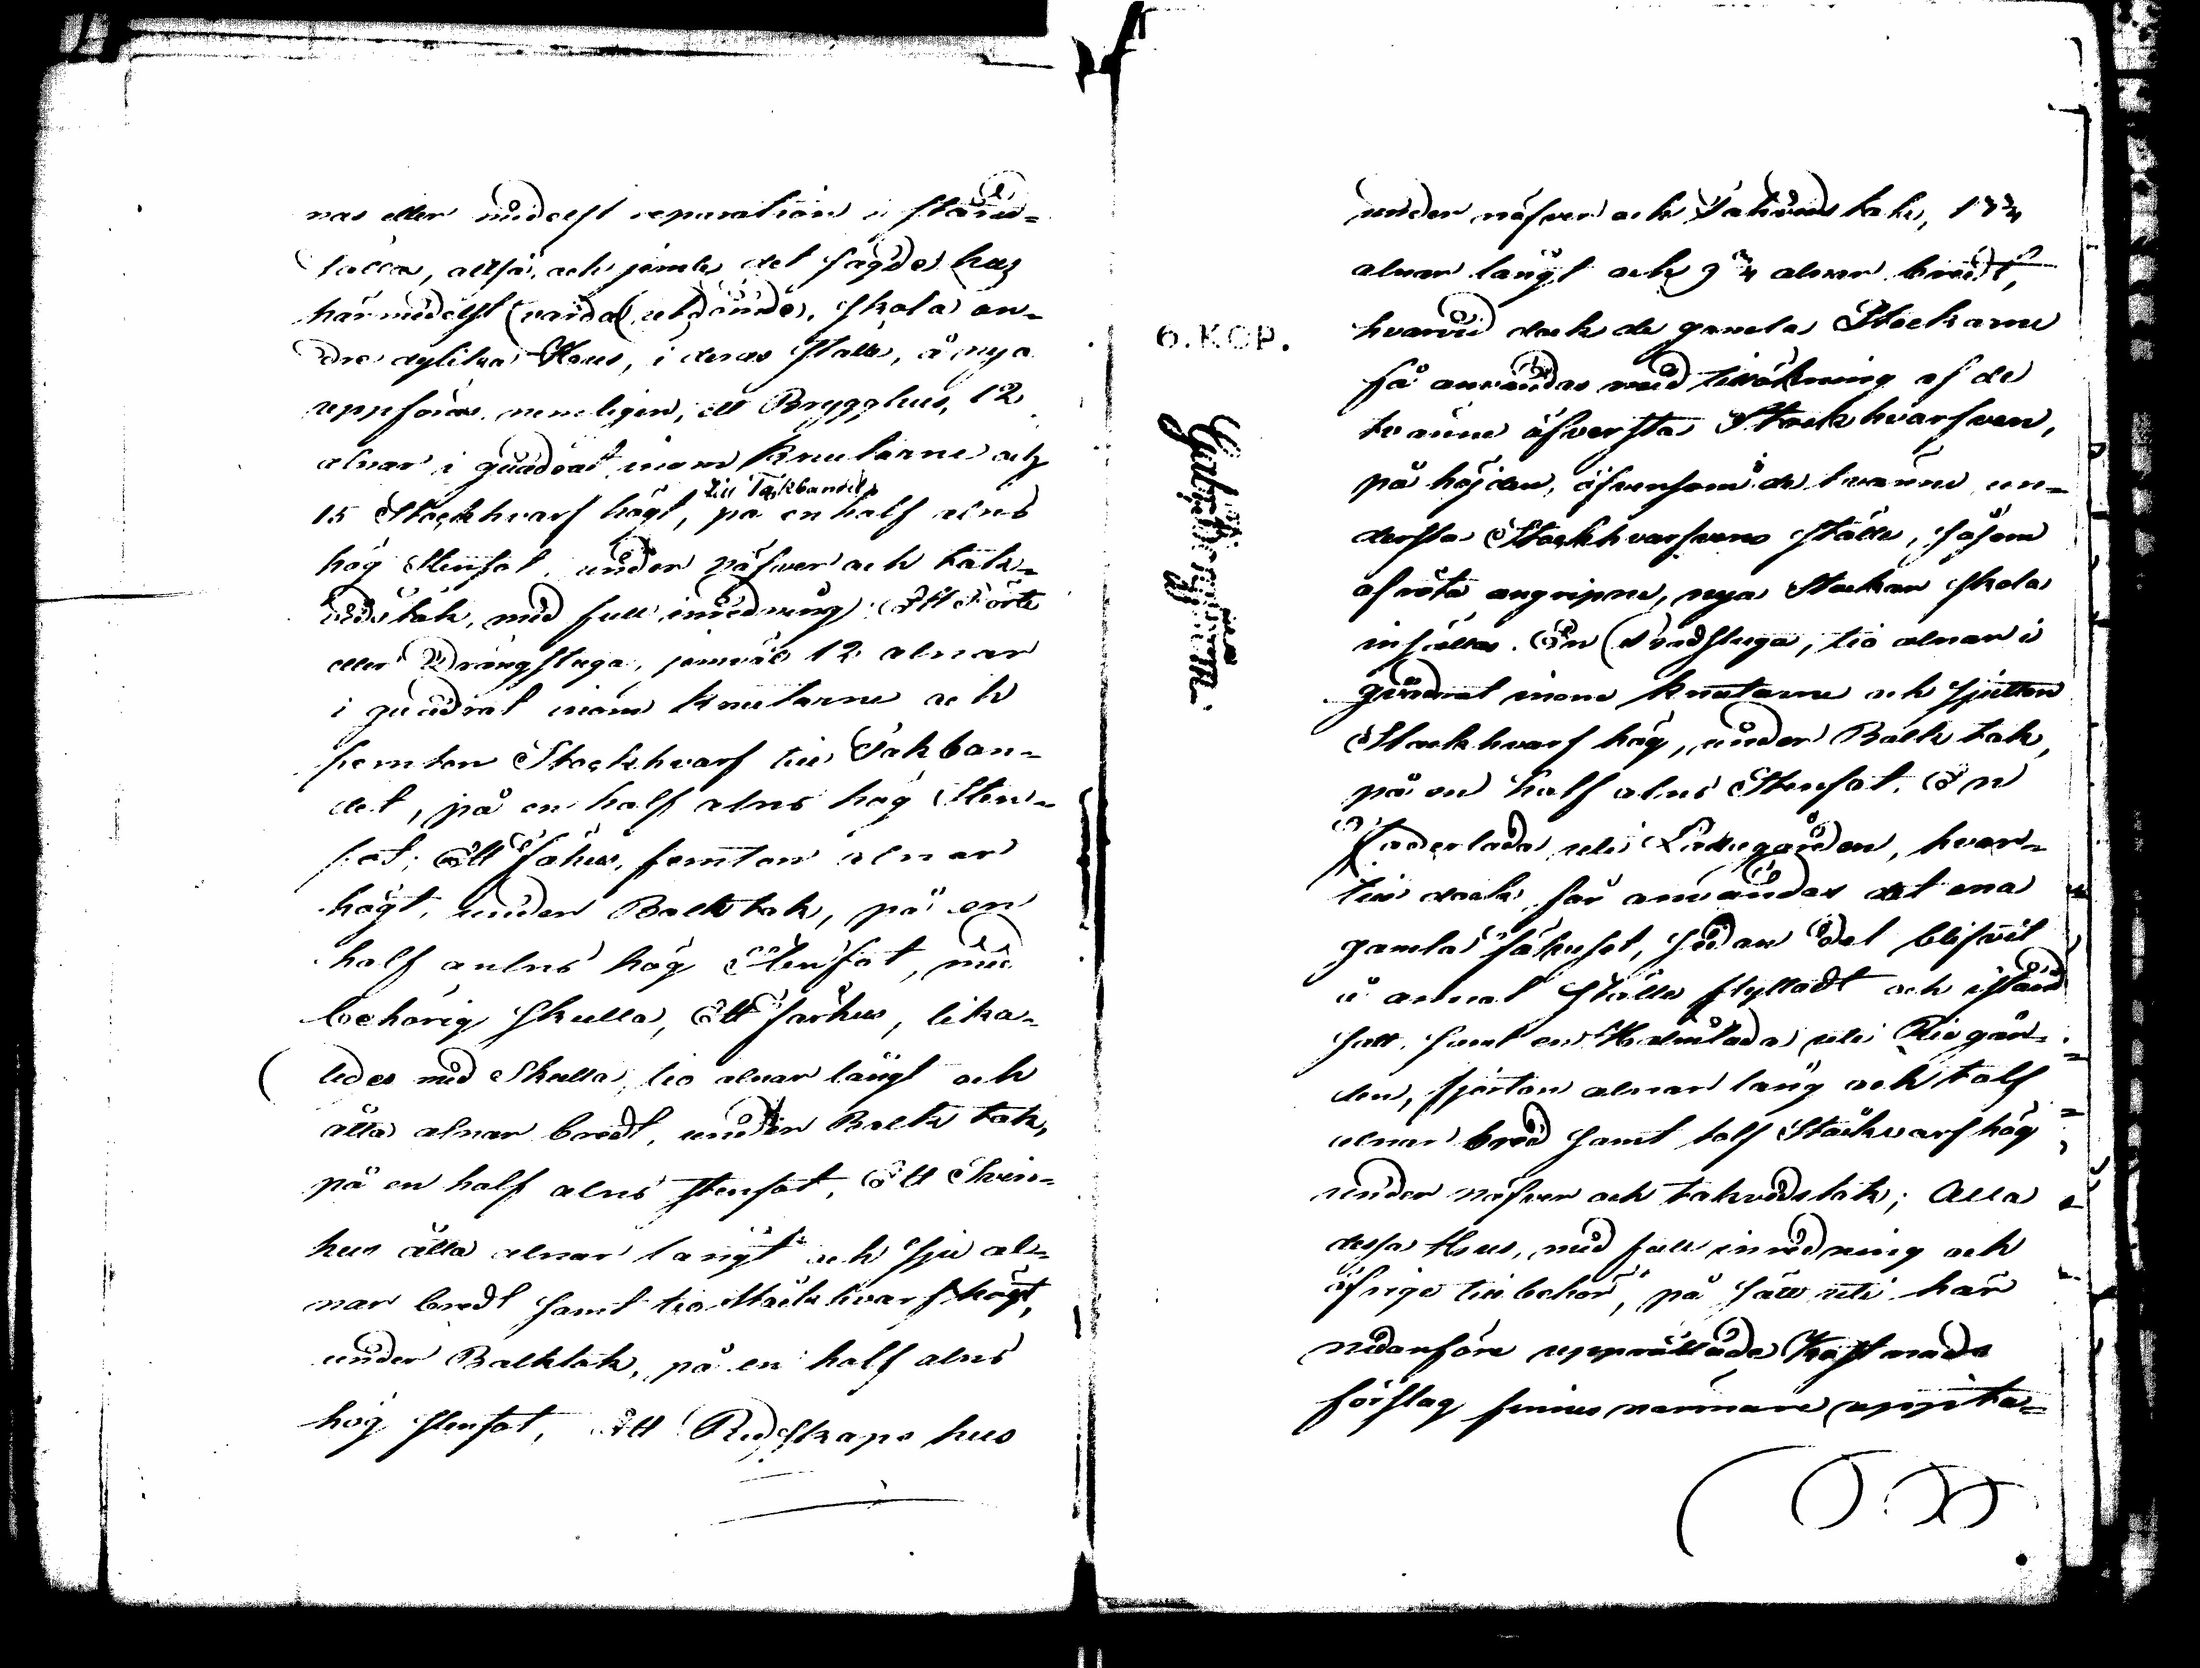 nas eller medelst reparation i stånd=
sättas, altså, och jemte det sagde hus
härmedelst varda utdömde, skola an=
dra dylika Hus, i deras ställe, å nya
uppföras nemligen; ett Brygghus, 12
alnar i quadrat inom knutarne och
till Takbandet
15 Stockhvarf högt, på en half alns
hög Stenfot, under näfver och tak=
vedstak, med full inredning; Ett Pörte
eller Drängstuga, jemväl 12 alnar
i quadrat inom knutarne och
femton Stockhvarf till Takban=
det, på en half alns hög Sten=
fot; Ett Fähus, femton alnar
högt, under Balktak, på en
half anlns hög Stenfot, med
behörig Skulla, Ett Farhus, lika=
ledes med Skulla, tio alnar långt och
åtta alnar bredt, under Balk tak,
på en half alns stenfot, Ett Svin=
hus åtta alnar långt och sju al=
nar bredt samt tio Stockhvarf högt,
under Balktak, på en half alns
hög stenfot, Ett Redskaps hus
under näfver och Takveds tak, 17 3/4
alnar långt och 9 3/4 alnar bredt,
6. KOP.
hvarvid dock de gamla Stockarne
få användas med tillökning af de
tvänne öfversta Stockhvarfven,
på höjden, äfvensom i de tvänne un=
dersta Stockhvarfvens ställe, såsom
af röta angripne, nya Stockar skola
insättas. En Badstuga, tio alnar i
quadrat inom knutarne och sjutton
Stockhvarf hög, under Balk tak,
på en half alns Stenfot. En
Foderlada uti Ladugården, hvar=
till dock får användas det ena
gamla fähuset, sedan det blifvit
å annat ställe flyttadt och istånd
satt, samt en Halmlada uti Riegår=
den, fjorton alnar lång och tolf
alnar bred samt tolf Stockvarf hög
under näfver och takvedstak; Alla
dessa Hus, med full inredning och
öfrige tillbehör, på sätt uti här
nedanföre upprättade Kostnads
förslag finnes närmare uppta=